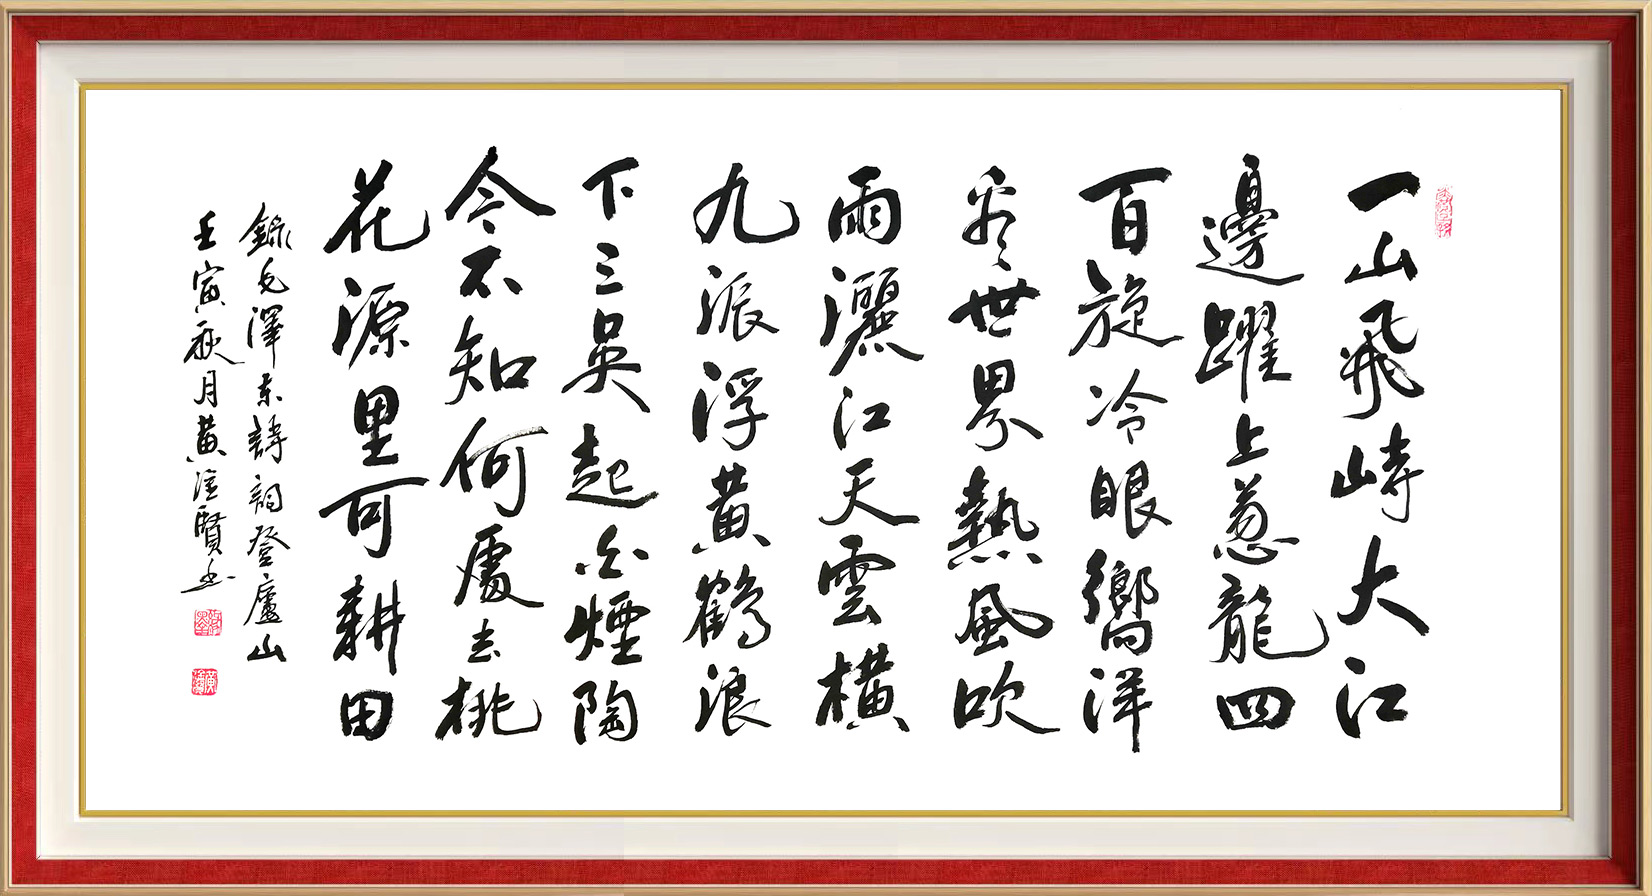 一山飛峙大江
邊躍上葱龍四
百旋冷眼嚮洋
看世界熱風吹
雨灑江天雲橫
九派浮黄鶴浪
下三吳起白煙陶
令不知何處去桃
花源里可耕田
錄毛澤東詩詞登廬山
壬寅秋月黄賢书